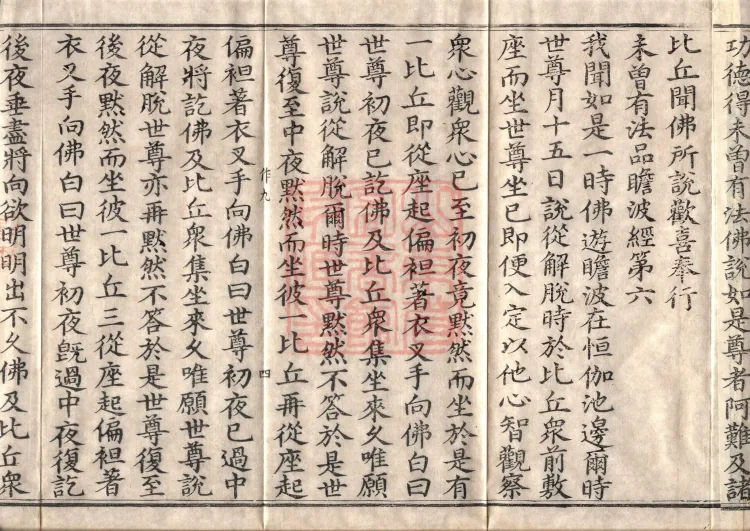 功德得未曽有法佛說如是尊者阿難及諸
比丘聞佛所說歡喜奉行
未曽有法品瞻波經第六
我聞如是一時佛遊瞻波在恒伽池邊爾時
世尊月十五日說從解脫時於比丘衆前敷
座而坐世尊坐已即便入定以他心智觀察
衆心觀衆心已至初夜竟默然而坐於是有
一比丘即從座起偏袒著衣叉手向佛白曰
世尊初夜已訖佛及比丘衆集坐來久唯願
世尊說從解脫爾時世尊默然不答於是世
尊復至中夜默然而坐彼一比丘再從座起
作九 四
偏袒著衣叉手向佛白曰世尊初夜已過中
夜將訖佛及比丘衆集坐來久唯願世尊說
從解脫世尊亦再默然不答於是世尊復至
後夜默然而坐彼一比丘三從座起偏袒著
衣叉手向佛白曰世尊初夜旣過中夜復訖
後夜垂盡將向欲明明出不久佛及比丘衆